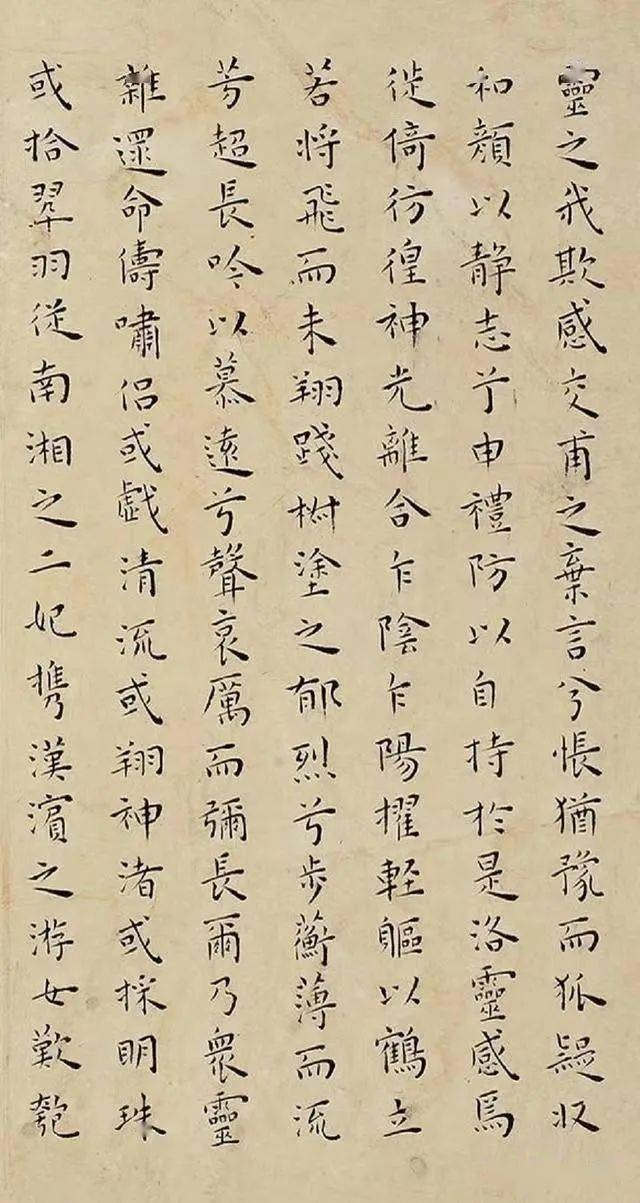 靈之我欺感交甫之棄言兮悵猶豫而狐疑収
和顔以静志兮申禮防以自持於是洛靈感焉
徙倚彷徨神光離合乍陰乍陽擢軽軀以鶴立
若將飛而未翔踐椒塗之郁烈兮步蘅薄而流
芳超長吟以慕遠兮聲哀厲而彌長爾乃衆靈
雜遝命儔嘯侣或戯清流或翔神渚或採明珠
或拾翠羽從南湘之二妃攜漢濱之游女歎匏